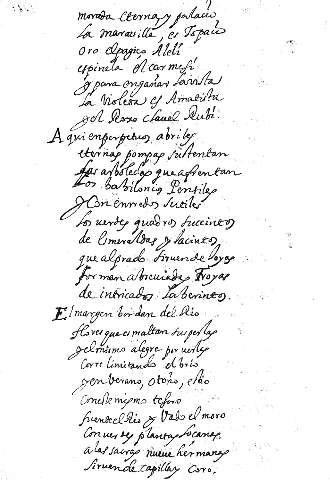 morada eterna, y palacio
la maravilla, es Topacio
Oro el pagiço Alelí
espinela el carmesí
y para engañar la vista
la Violeta es Amatista
y el Roxo clavel Rubí.
Aqui en perpetuos abriles
eternas pompas sustentan
las arboledas que afrentan
los babilonios Pensiles
y Con enredos sutiles
los verdes quadros succintos
de Esmeraldas y Jacintos
que al prado siruen de joyas
forman abreuiadas Troyas
de intricados Laberintos.
El margen bordan del Rio
flores que esmaltan sus perlas
y el mismo alegre por verlas
Corre limitando el brio
y en Verano, otoño, estio
Con el mismo tesoro
fuente el Rio y Vado el moro
Con verdes plantas
a las sacras nueue hermanas
siruen de capilla y Coro.